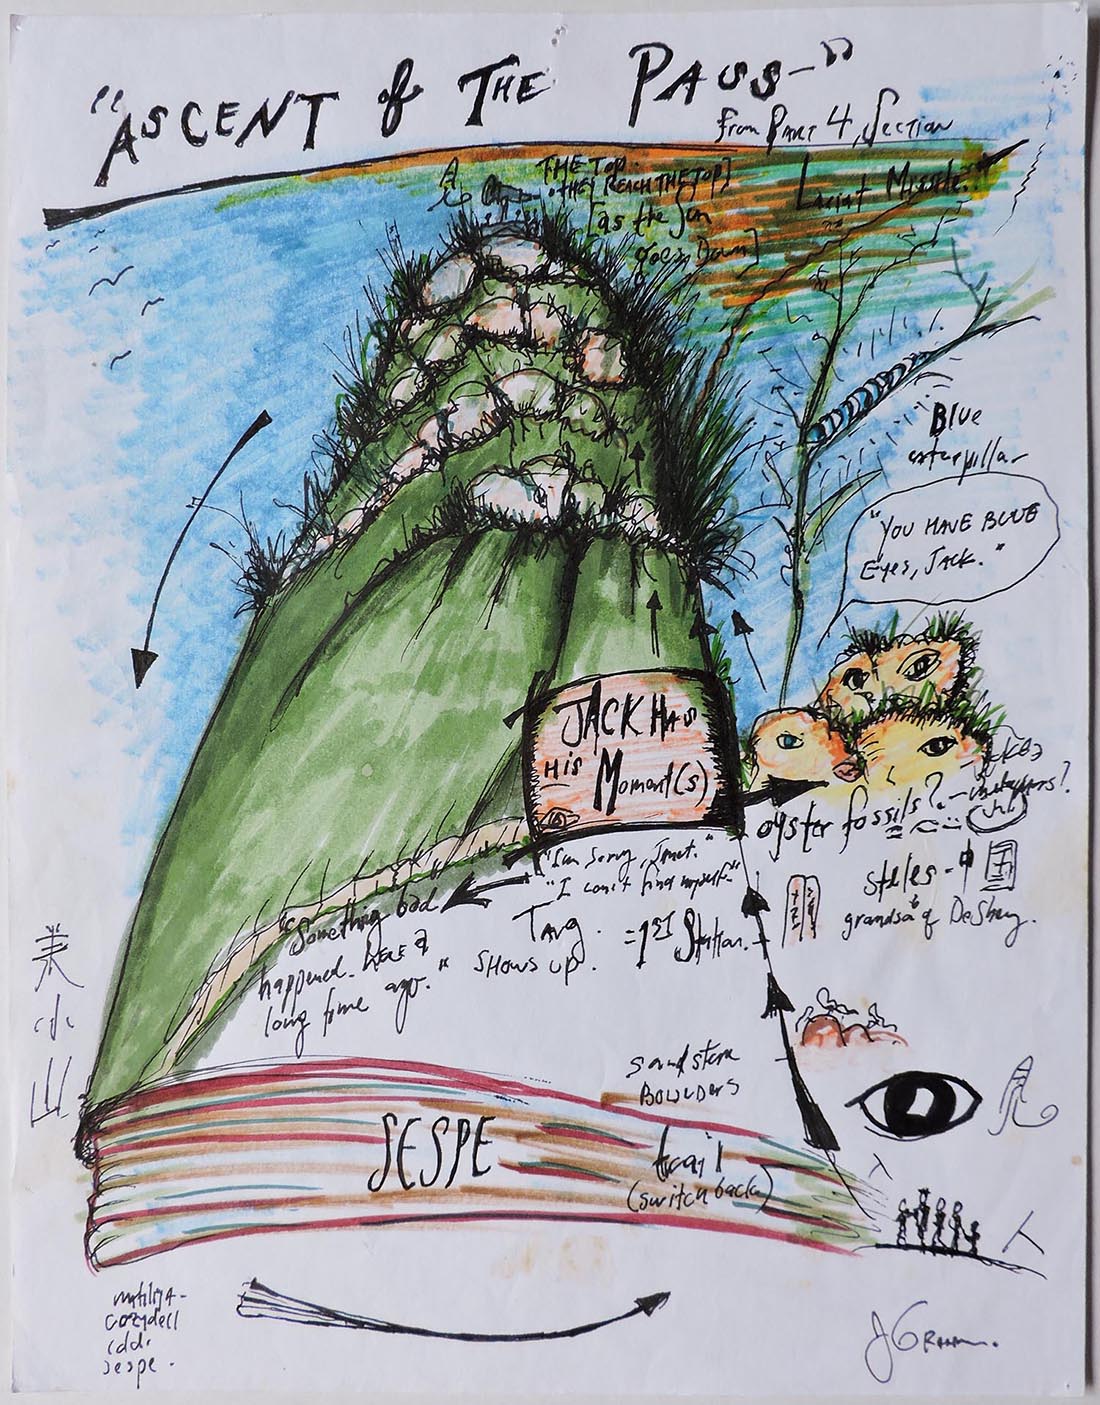 "ASCENT of THE PASS-"
From PART 4, Section
THE TOP
THEY REACH THE TOP]
[as the Sun
goes Down]
Blue
caterpillar
"YOU HAVE BLUE
Eyes, JACK."
JACK HAS
His Moment(s)
oyster fossils?
steles -
grandsa of DeSheng.
"I'm sorry, Janet."
"I can't find myself."
"Something bad
happened here a
long time ago."
Tang.
SHOWS UP.
=1st Station.
美
小
山
sandstone
BOULDERS
SESPE
trail
(switchback)
人
matilija-
cozydell
cdd.
sespe.
JGraham.